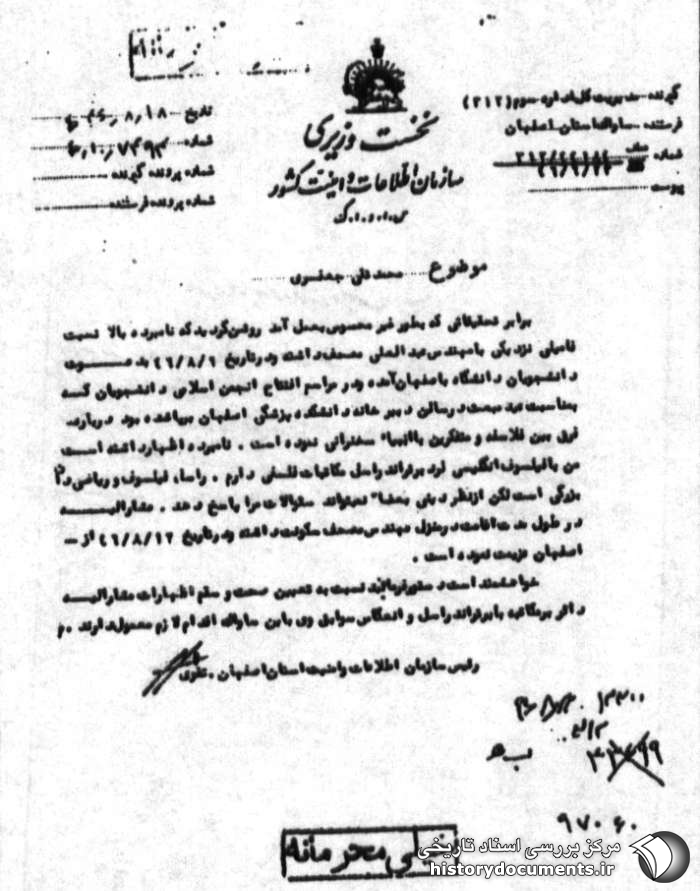 گیرنده- مدیریت کل اداره سوم (۳۱۲)
فرستنده- ساواک استان اصفهان
شماره
پیوست
نخست وزیری
سازمان اطلاعات و امنیت کشور
س.ا.و.ا.ک
تاریخ ۴۶/۸/۱۸
شماره
شماره پرونده گیرنده
شماره پرونده فرستنده
موضوع محمد تقی جعفری
برابر تحقیقاتی که بطور غیر محسوس بعمل آمد روشن گردید که نامبرده بالا نسبت
فامیلی نزدیکی با مهندس عبدالعلی مصحف داشته و در تاریخ ۴۶/۸/۹ بدعوت
دانشجویان دانشگاه باصفهان آمده و در مراسم افتتاح انجمن اسلامی دانشجویان که
بمناسبت عید مبعث در سالن دبیرخانه دانشکده پزشکی اصفهان برپا شده بود درباره
فرق بین فلاسفه و متفکرین با انبیا" سخنرانی نموده است . نامبرده اظهار داشته است
من با فیلسوف انگلیسی لرد برتراند راسل مکاتبات فلسفی دارم . راسل فیلسوف و ریاضی دان
بزرگی است لکن از نظر دینی بعضا" نمیتواند سئوالات مرا پاسخ دهد . مشارالیه
در طول مدت اقامت در منزل مهندس مصحف سکونت داشته و در تاریخ ۴۶/۸/۱۲ از -
اصفهان عزیمت نموده است .
خواهشمند است دستور فرمائید نسبت به تعیین صحت و سقم اظهارات مشارالیه
دائر بر مکاتبه با برتراند راسل و انعکاس سوابق وی باین ساواک اقدام لازم معمول دارند . م
رئیس سازمان اطلاعات و امنیت استان اصفهان . تقوی
۹۷۰۶۰
خیلی محرمانه
مرکز بررسی اسناد تاریخی
historydocuments.ir